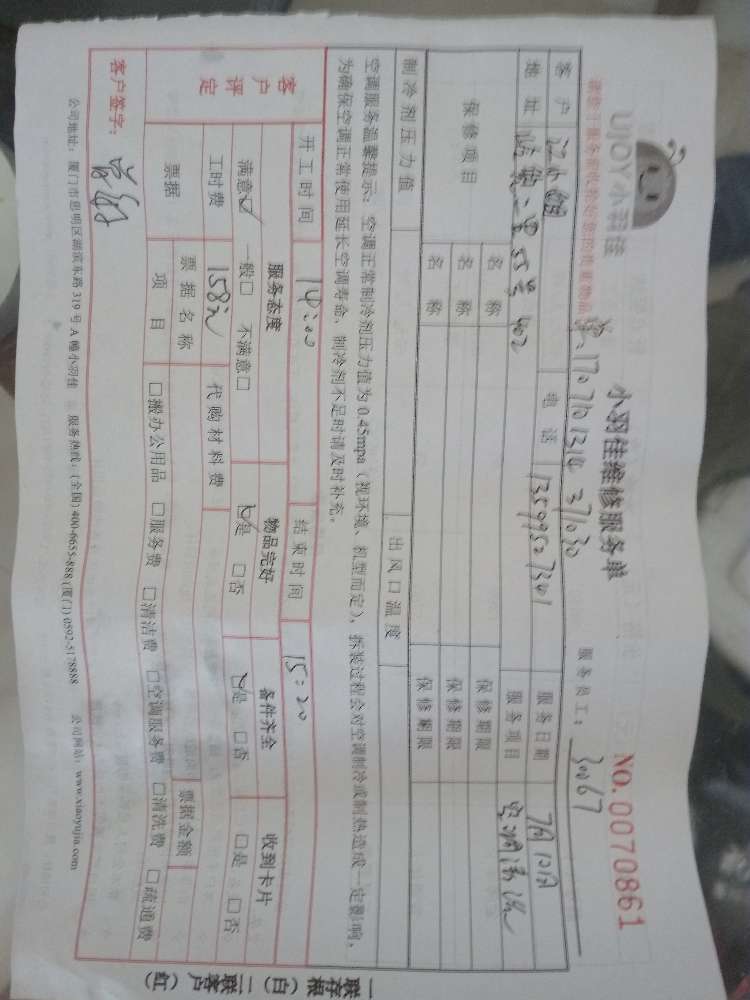 UJOY小羽佳
小羽佳维修服务单
NO. 0070861
请您于服务前收拾好您的贵重物品
单: 1707101310371030
服务员工: 30067
客户 江小姐 电话 13599507301 服务日期 7月10日
地址 二里55号402 服务项目 空调清洗
保修项目 名称 保修期限
名称 保修期限
名称 保修期限
制冷剂压力值 出风口温度
空调服务温馨提示: 空调正常制冷剂压力值为0.45mpa (视环境、机型而定), 拆装过程会对空调制冷或制热造成一定影响,
为确保空调正常使用延长空调寿命, 制冷剂不足时请及时补充。
开工时间 14:00 结束时间 15:20
客户评定 服务态度 物品完好 备件齐全 收到卡片
满意☑ 一般□ 不满意□ ☑是 □否 ☑是 □否 □是 □否
工时费 158元 代购材料费
票据 票据名称 票据金额
项目 □搬办公用品 □服务费 □清洁费 □空调服务费 □清洗费 □疏通费
客户签字:
公司地址: 厦门市思明区湖滨东路319号A幢小羽佳 服务热线: (全国) 400-6655-888 (厦门) 0592-5178888 公司网站: www.xiaoyujia.com
一联存根 (白) 二联客户 (红)